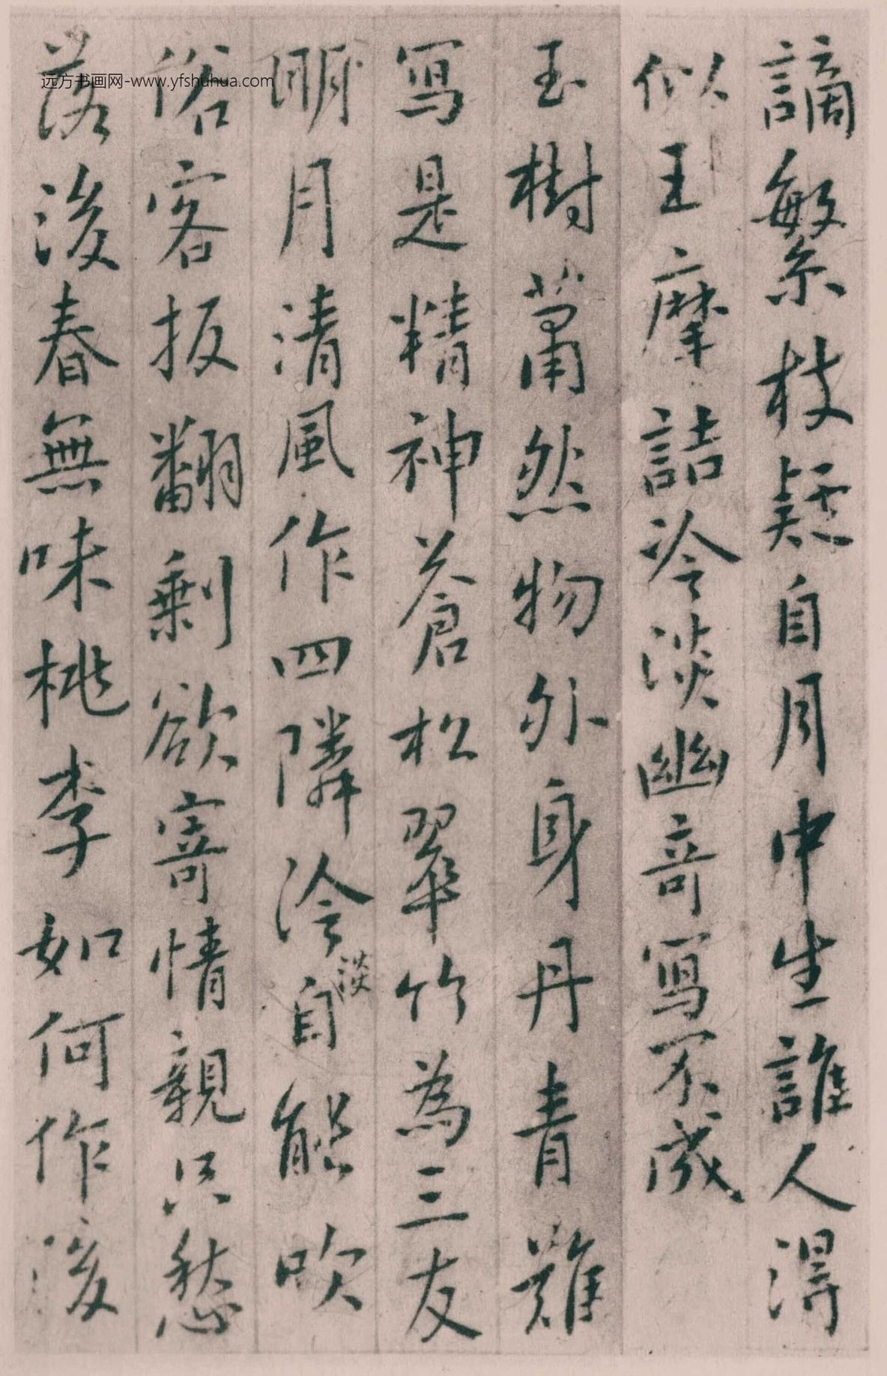 謫繁枝疑自月中生誰人得
似王摩詰冷淡幽奇寫不成
玉樹蕭然物外身丹青難
寫是精神蒼松翠竹為三友
明月清風作四隣冷淡自能吹
俗客扳翻剩欲寄情親只愁
落後春無味桃李如何作後
远方书画网-www.yfshuhua.com